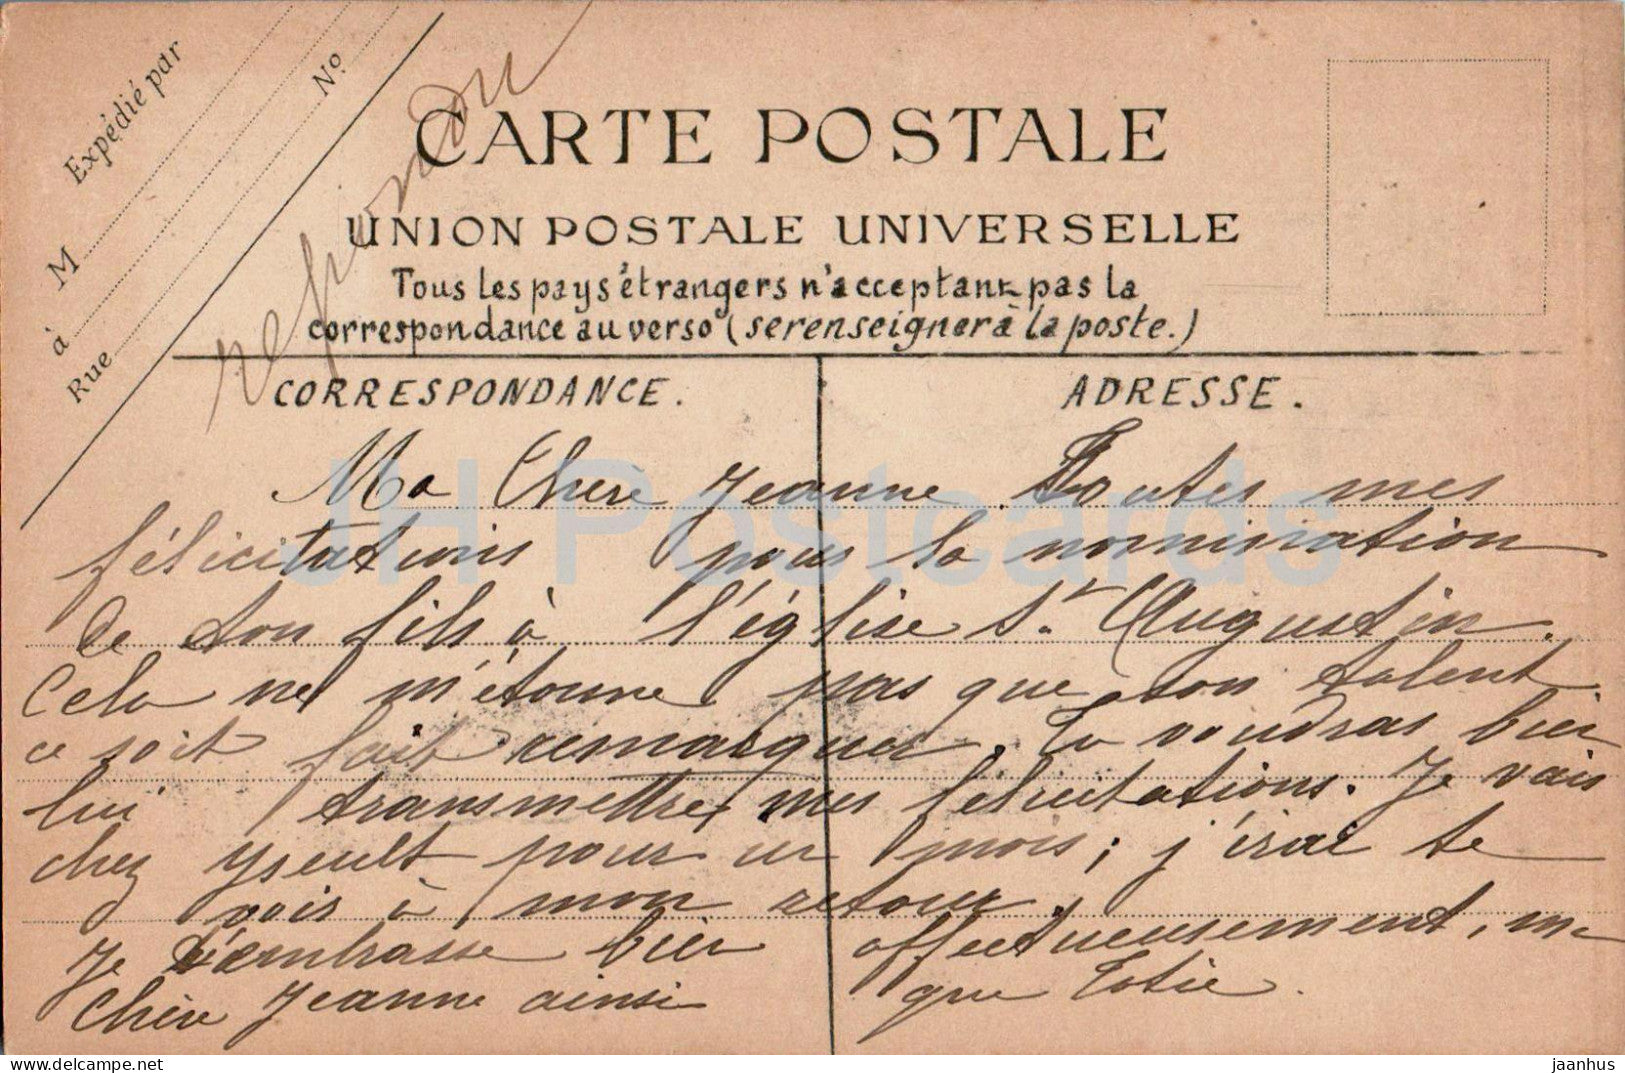 Expédié par
M
à
Rue
Nº
répondu
CARTE POSTALE
UNION POSTALE UNIVERSELLE
Tous les pays étrangers n'acceptent pas la
correspondance au verso (se renseigner à la poste.)
CORRESPONDANCE.
ADRESSE.
Ma Chère Jeanne Toutes mes
félicitations pour la nomination
de ton fils à l'église St. Augustin.
Cela ne m'étonne pas que son talent
ce soit fait remarquer. Tu voudras bien
lui transmettre mes félicitations. Je vais
chez Yseult pour un mois; j'irai te
voir à mon retour.
Je t'embrasse bien affectueusement, ma
Chère Jeanne ainsi que
JH Postcards
delcampe.net
jaanhus